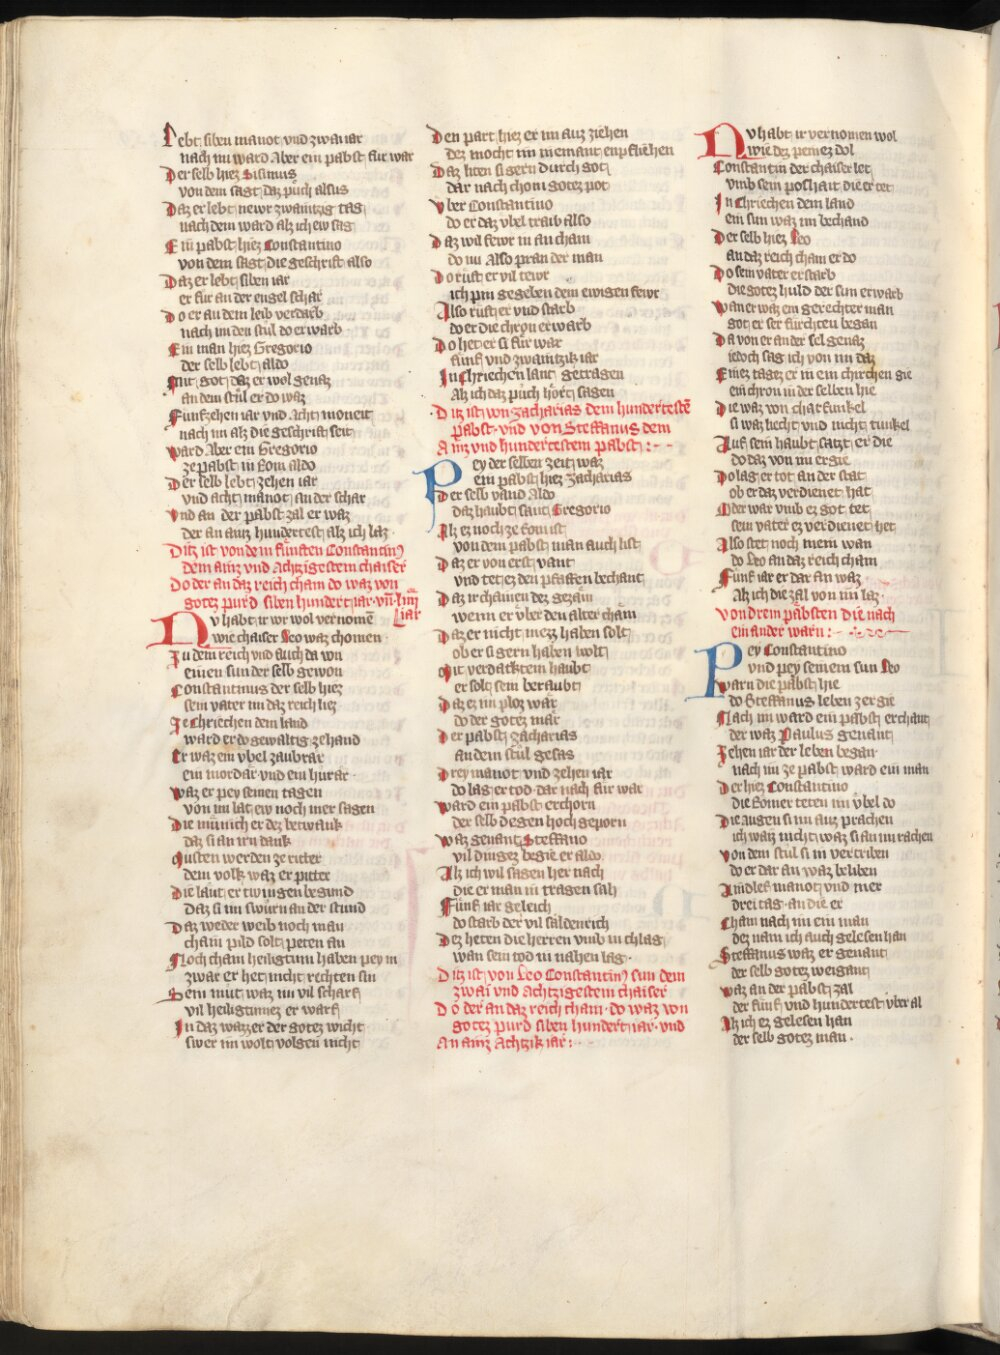 Lebt siben manot vnd zwai iar
nach im ward Aber ein pabst für war
Der selb hiez Sisinius
von dem sagt daz puch alsus
Daz er lebt newr zwaintzig tag
nach dem ward alz ich ew sag
Ein pabst hiez Constantino
von dem sagt die geschrift also
Daz er lebt siben iar
er für an der engel schar
Do er an dem leib verdarb
nach im den stul do erwarb
Ein man hiez Gregorio
der selb lebt aldo
Mit got daz er wol genaz
an dem stul er do waz
Funfzehen iar vnd Acht moneit
nach im alz die geschrift seit
Ward Aber ein Gregorio
ze pabst in Rom aldo
Der selb lebt zehen iar
vnd acht manot an der schar
Vnd an der pabst zal er waz
der an ainz hundertest alz ich laz
Ditz ist von dem fünften Constantin9
dem ainz vnd Achtzigestem chaiser
Do der an daz reich cham do waz von
gotez purd siben hundert iar vnd liiii
iar
Nv habt ir wr wol vernomē
wie chaiser Leo waz chomen
Zu dem reich vnd auch da von
einen sun der selb gewon
Constantinus der selb hiez
sein vater im daz reich liez
Ze Chriechen dem land
ward er do gewaltig zehand
Er waz ein vbel zaubrar
ein mordar vnd ein hurar
Waz er pey seinen tagen
von im lat ew noch mer sagen
Die münich er dez betwank
daz si an irn dank
Musten werden ze ritter
dem volk waz er pitter
Die laut er twingen begund
Daz si im swurn an der stund
Daz weder weib noch man
cham pild solt peten an
Noch cham heiligtum haben pey in
zwar er het nicht rechten sin
Sein mut waz im vil scharf
vil heiligtumez er warf
In daz wazzer der gotez wicht
swer im wolt volgen nicht
Den part hiez er im auz ziehen
dez mocht im niemant enpfliehen
Daz liten si gern durch got
dar nach chom gotez pot
Vber Constantino
do er daz vbel traib also
Daz wil fewr in an cham
do im Also pran der man
Do rüft er vil tewr
ich pin gegeben dem ewigen fewr
Also ruft er vnd starb
do er die chron erwarb
Do het er si für war
funf vnd zwaintzik iar
In Chriechen lant getragen
Alz ich daz puch hort sagen
Ditz ist von zacharias dem hundertestē
pabst vnd von Steffanus dem
Ainz vnd hundertestem pabst
Pey der selben zeit waz
ein pabst hiez Zacharias
Der selb vand Aldo
daz haubt sant Gregorio
Alz ez noch ze Rom ist
von dem pabst man auch list
Daz er von erst vant
vnd tet ez den pfaffen bechant
Daz ir chainen dez gezäm
wenn er vber den alter cham
Daz er nicht mezz haben solt
ob er si gern haben wolt
Mit verdacktem haubt
er solt sein beraubt
Daz ez im ploz wär
do der gotez mär
Der pabst zacharias
an dem stul gesas
Drey manot vnd zehen iar
do lag er tod dar nach für war
Ward ein pabst erchorn
der selb degen hoch geporn
Waz genant Steffano
vil dingez begie er aldo
Alz ich wil sagen her nach
die er man in tragen sah
Funf iar geleich
do starb der vil säldenreich
Dez heten die herren vmb in chlag
wan sein tod in nahen lag
Ditz ist von Leo Constantin9 sun dem
zwai vnd Achtzigestem chaiser
Do der an daz reich cham do waz von
gotez purd siben hundert iar vnd
An ainz Achtzik iar
Nv habt ir vernomen wol
wie dez peinez dol
Constantin der chaiser let
vmb sein poshait die er tet
In Chriechen dem land
ein sun waz im bechand
Der selb hiez Leo
an daz reich cham er do
Do sein vater erstarb
die gotez huld der sun erwarb
Wan er waz ein gerechter man
got er ser fürchten began
Da von er an der sel genaz
iedoch sag ich von im daz
Einez tagez er in ein chirchen gie
ein chron in der selben hie
Die waz von charfunkel
si waz liecht vnd nicht tunkel
Auf sein haubt satzt er die
do daz von im ergie
Do lag er tot an der stat
ob er daz verdienet hat
Oder war vmb ez got tet
sein vater ez verdienet het
Also stet noch mein wan
do Leo an daz reich cham
Funf iar er dar an waz
Alz ich die zal von im laz
Von drein päbsten die nach
ein ander warn
Pey Constantino
vnd pey seinem sun Leo
Warn die päbst hie
do Steffanus leben zergie
Nach im ward ein pabst erchant
der waz Paulus genant
Zehen iar der leben began
nach im ze pabst ward ein man
Der hiez Constantino
die Romer teten im vbel do
Die augen si im auz prachen
ich waiz nicht waz si an im rachen
Von dem stul si in vertriben
do er dar an waz beliben
Aindlef manot vnd mer
drei tag an die er
Cham nach im ein man
dez nam ich auch gelesen han
Steffanus waz er genant
der selb gotez weigant
Waz an der pabst zal
der funf vnd hundertest vber al
Alz ich ez gelesen han
der selb gotez man